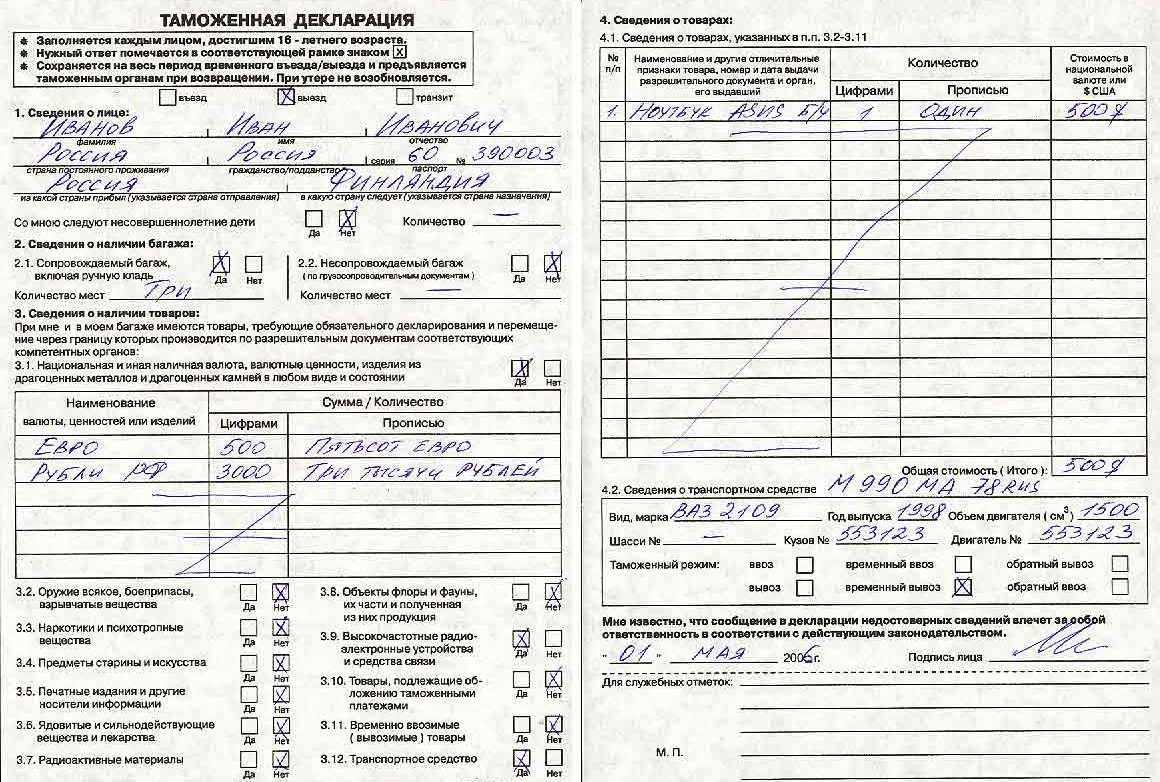 ТАМОЖЕННАЯ ДЕКЛАРАЦИЯ
✷ Заполняется каждым лицом, достигшим 16 - летнего возраста.
✷ Нужный ответ помечается в соответствующей рамке знаком X
✷ Сохраняется на весь период временного въезда/выезда и предъявляется
таможенным органам при возвращении. При утере не возобновляется.
въезд X выезд транзит
1. Сведения о лице:
ИВАНОВ ИВАН ИВАНОВИЧ
фамилия имя отчество
РОССИЯ РОССИЯ серия 60 № 390003
страна постоянного проживания гражданство/подданство паспорт
РОССИЯ ФИНЛАНДИЯ
из какой страны прибыл (указывается страна отправления) в какую страну следует (указывается страна назначения)
Со мною следуют несовершеннолетние дети X Количество —
Да Нет
2. Сведения о наличии багажа:
2.1. Сопровождаемый багаж, X 2.2. Несопровождаемый багаж X
включая ручную кладь Да Нет ( по грузосопроводительным документам ) Да Нет
Количество мест ТРИ Количество мест —
3. Сведения о наличии товаров:
При мне и в моем багаже имеются товары, требующие обязательного декларирования и перемеще-
ние через границу которых производится по разрешительным документам соответствующих
компетентных органов:
3.1. Национальная и иная наличная валюта, валютные ценности, изделия из X
драгоценных металлов и драгоценных камней в любом виде и состоянии Да Нет
Наименование Сумма / Количество
валюты, ценностей или изделий Цифрами Прописью
ЕВРО 500 ПЯТЬСОТ ЕВРО
РУБЛИ РФ 3000 ТРИ ТЫСЯЧИ РУБЛЕЙ
3.2. Оружие всякое, боеприпасы, X
взрывчатые вещества Да Нет
3.3. Наркотики и психотропные X
вещества Да Нет
3.4. Предметы старины и искусства X
Да Нет
3.5. Печатные издания и другие X
носители информации Да Нет
3.6. Ядовитые и сильнодействующие X
вещества и лекарства Да Нет
3.7. Радиоактивные материалы X
Да Нет
3.8. Объекты флоры и фауны, X
их части и полученная Да Нет
из них продукция
3.9. Высокочастотные радио- X
электронные устройства Да Нет
и средства связи
3.10. Товары, подлежащие об- X
ложению таможенными Да Нет
платежами
3.11. Временно ввозимые X
( вывозимые ) товары Да Нет
3.12. Транспортное средство X
Да Нет
4. Сведения о товарах:
4.1. Сведения о товарах, указанных в п.п. 3.2-3.11
№ п/п Наименование и другие отличительные Количество Стоимость в
признаки товара, номер и дата выдачи национальной
разрешительного документа и орган, Цифрами Прописью валюте или
его выдавший $ США
1. НОУТБУК ASUS Б/У 1 ОДИН 500 $
Общая стоимость ( Итого ): 500 $
4.2. Сведения о транспортном средстве М 990 МА 78 RUS
Вид, марка ВАЗ 2109 Год выпуска 1998 Объем двигателя ( см3 ) 1500
Шасси № — Кузов № 553123 Двигатель № 553123
Таможенный режим: ввоз временный ввоз обратный вывоз
вывоз временный вывоз X обратный ввоз
Мне известно, что сообщение в декларации недостоверных сведений влечет за собой
ответственность в соответствии с действующим законодательством.
" 01 " МАЯ 2006 г. Подпись лица
Для служебных отметок:
М. П.